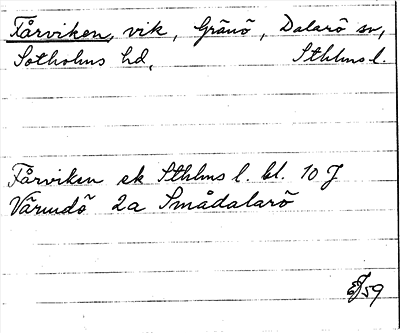 Fårviken, vik, Gränö, Dalarö sn,
Sotholms hd, Sthlms l.
Fårviken ek Sthlms l. bl. 10 J
Värmdö 2a Smådalarö
59